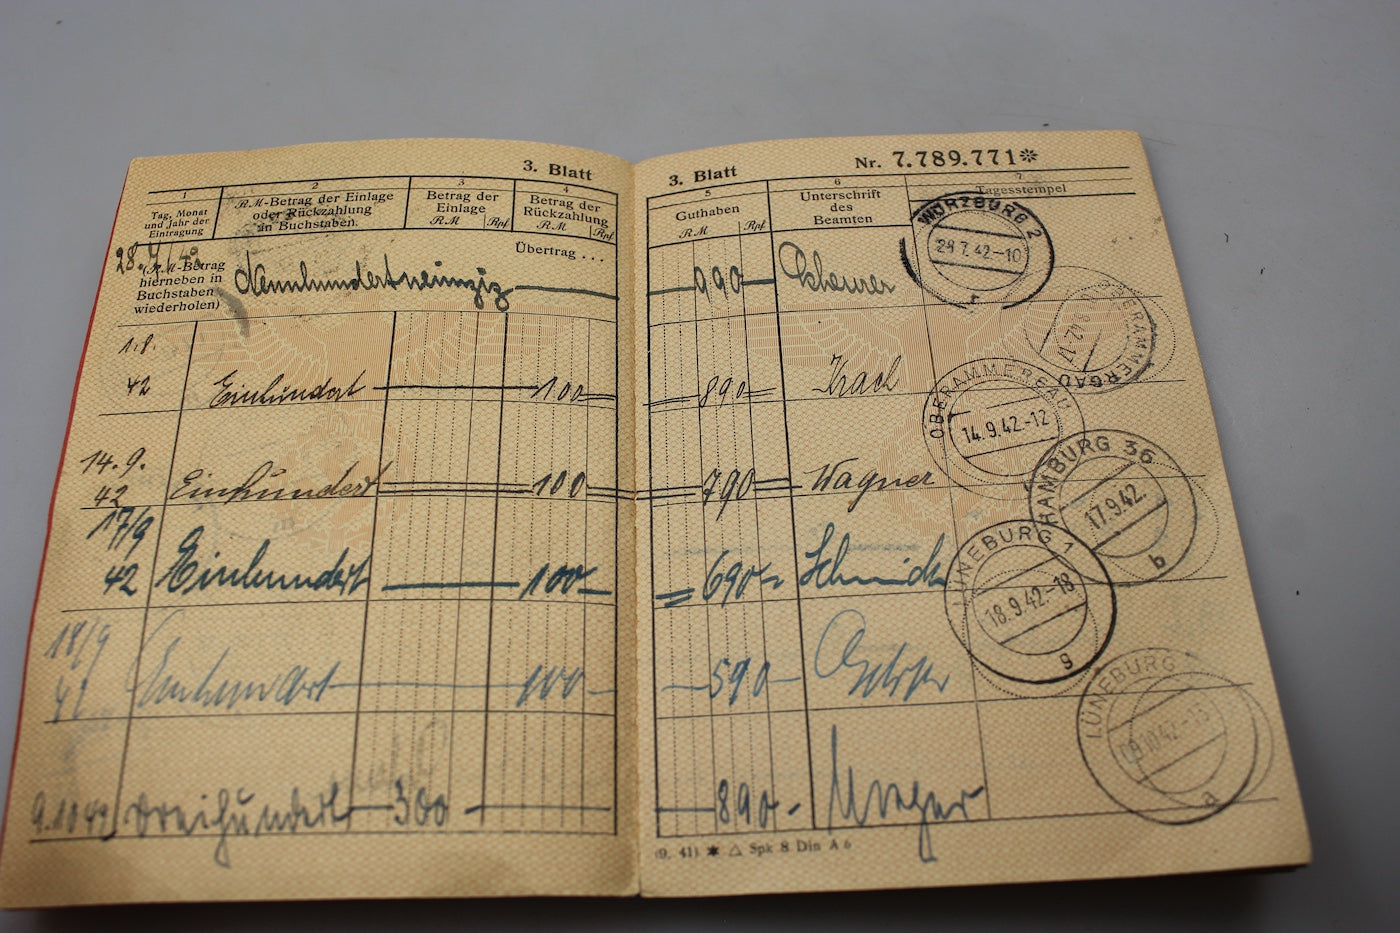 3. Blatt
1 2 3 4
Tag, Monat und Jahr der Eintragung
RM-Betrag der Einlage oder Rückzahlung in Buchstaben.
Betrag der Einlage
RM Rpf
Betrag der Rückzahlung
RM Rpf
Übertrag . . .
28/7/42
(RM-Betrag hierneben in Buchstaben wiederholen)
Neunhundertneunzig
1.8. 42 Einhundert 100
14.9. 42 Einhundert 100
17/9 42 Einhundert 100
18/9 42 Einhundert 100
9.10 42 Dreihundert 300
3. Blatt Nr. 7.789.771*
5 6 7
Guthaben
RM Rpf
Unterschrift des Beamten
Tagesstempel
990 Scheurer
890
790 Wagner
690 Schmidt
590
890
WÜRZBURG 2
28.7.42.–10
r
OBERAMMERGAU
.8.42.17
OBERAMMERGAU
14.9.42.-12
HAMBURG 36
17.9.42.
b
LÜNEBURG 1
18.9.42.-18
g
LÜNEBURG
09.10.42.-13
a
(9. 41) ✱ △ Spk 8 Din A 6